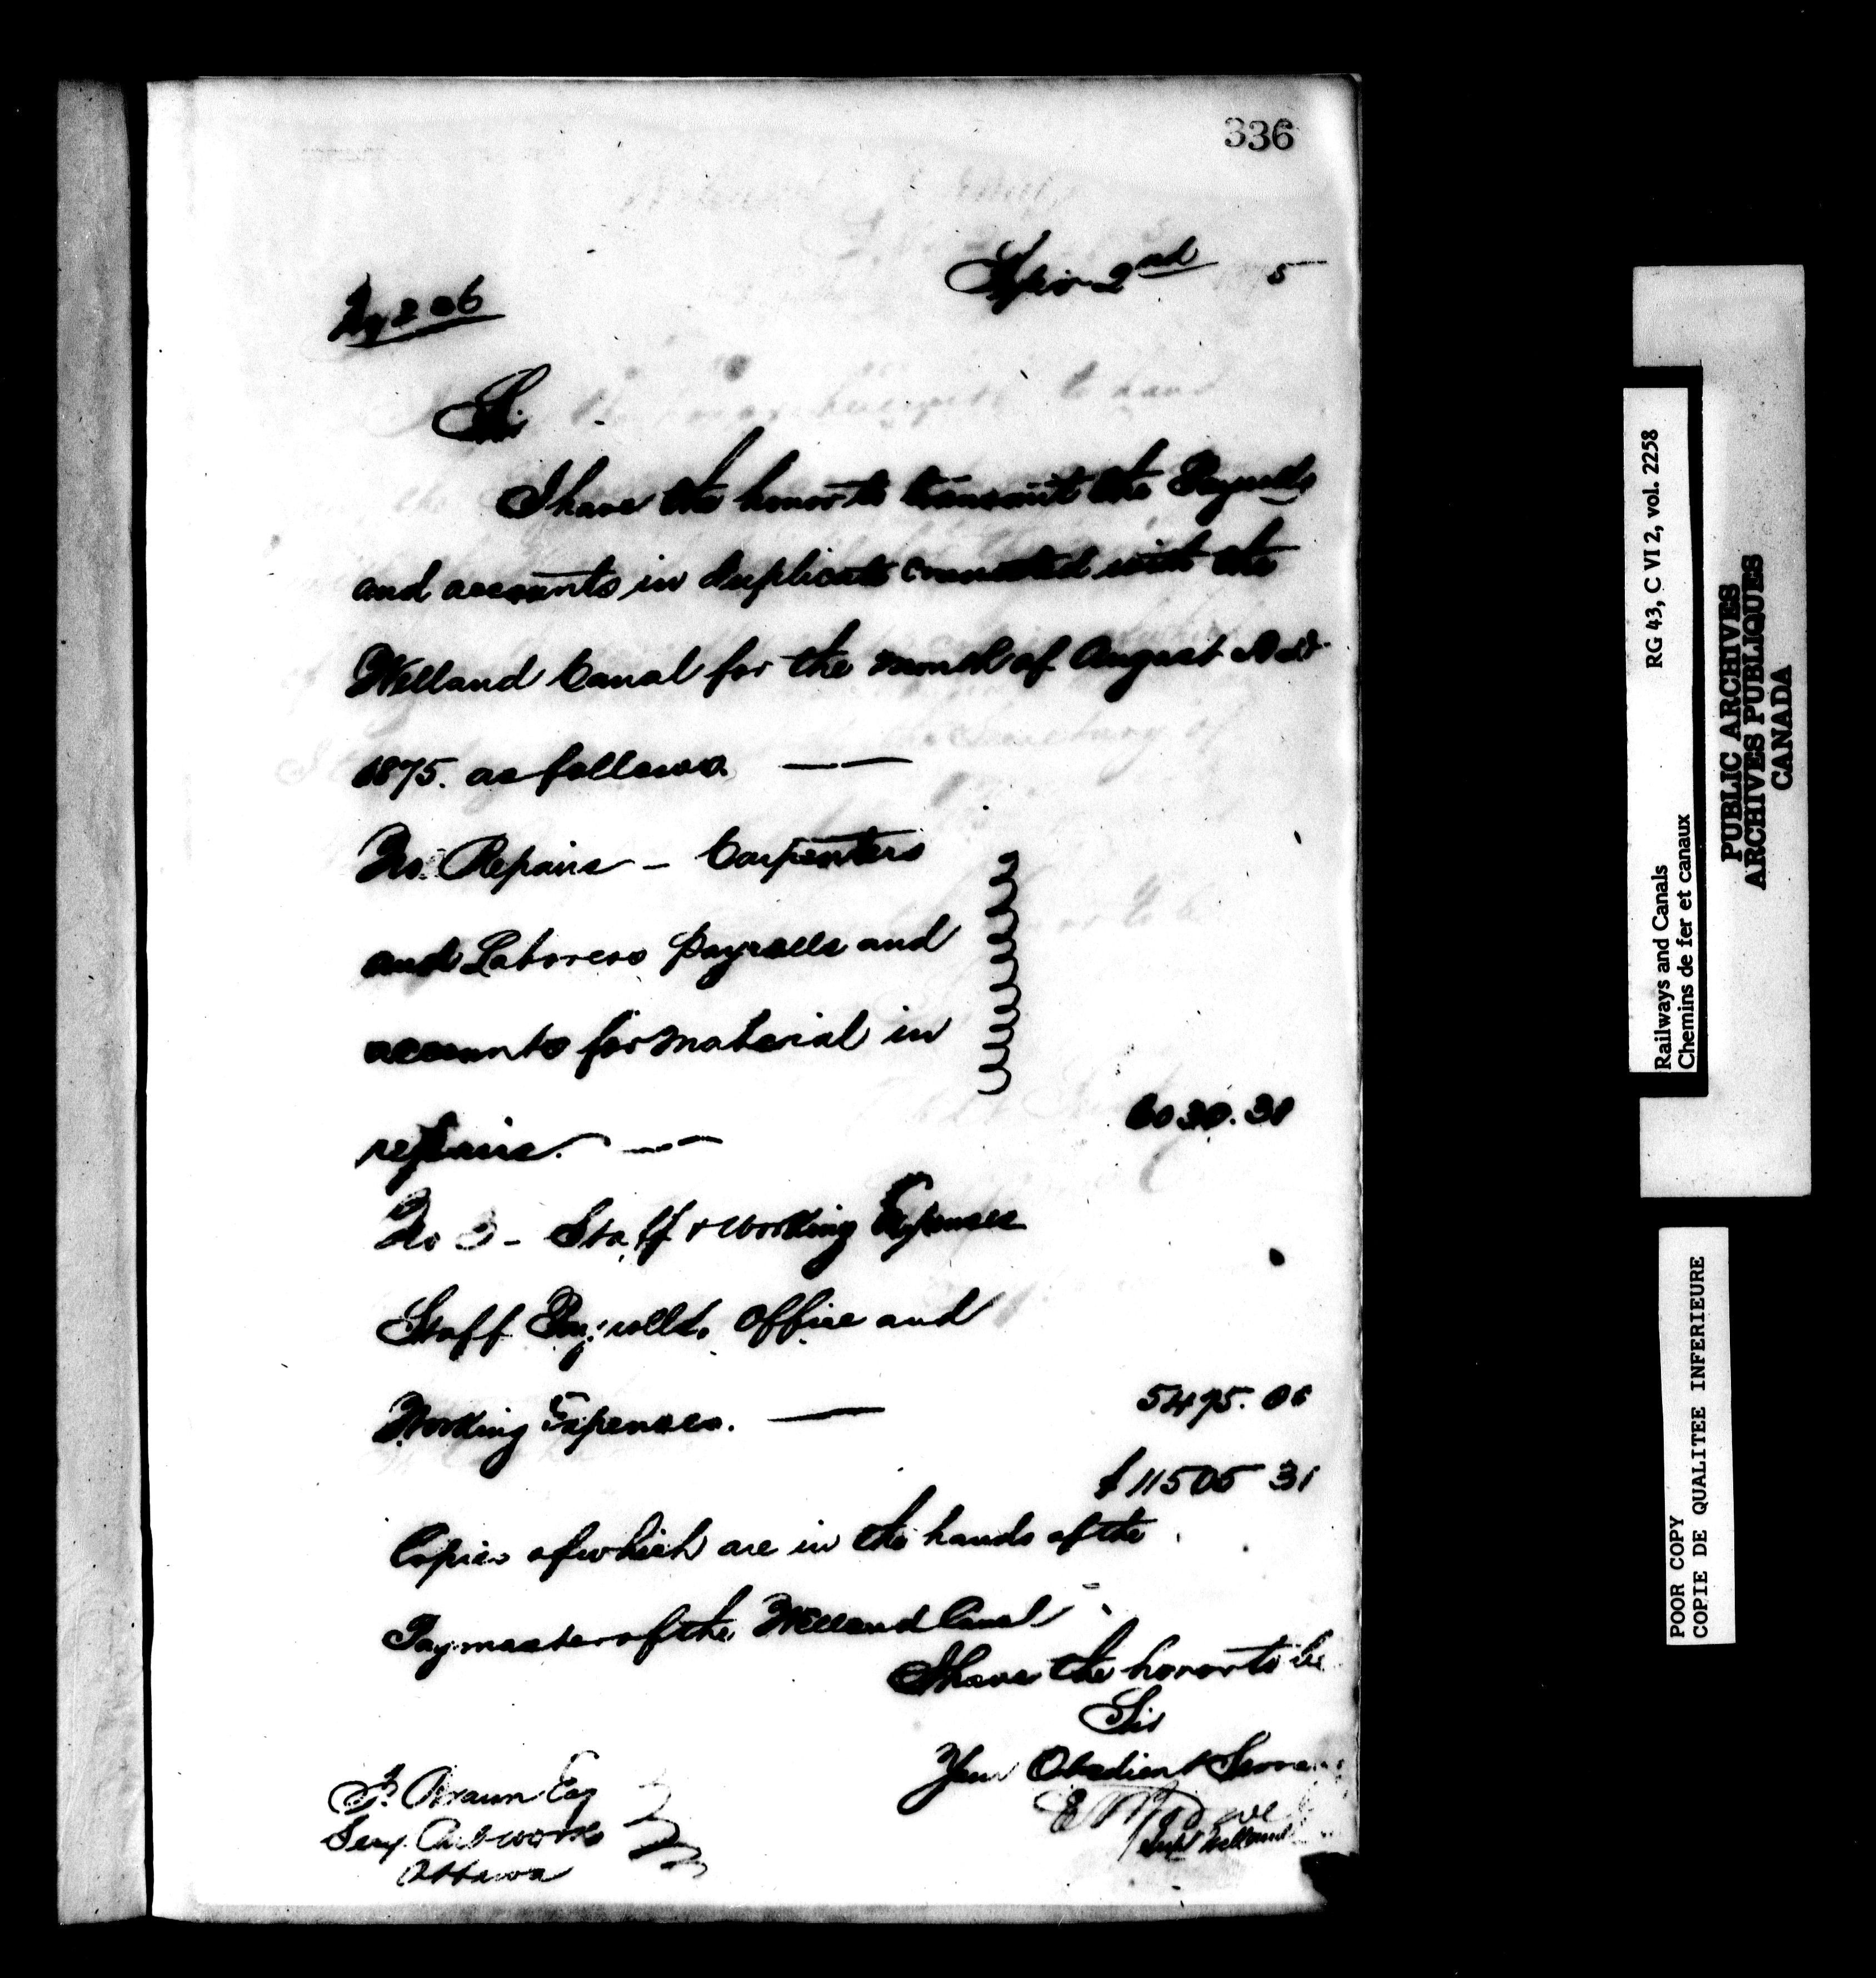 336
2nd 5
Sir
I have the honor to transmit the Payrolls
and accounts in duplicate connected with the
Welland Canal for the month of August A.D.
1875. as follows.
No. Repairs - Carpenters
and Laborers payrolls and
accounts for material in
repairs. 6030.
No 3 - Staff & Working Expenses
Staff Payrolls, Office and
Working Expenses. 5475.
$11505 31
Copies of which are in the hands of the
Paymaster of the Welland Canal
I have the honor to be
Sir
Your Obedient
F. Braun Esq
Secy. Pub works
Ottawa
Supt Welland
RG 43, C VI 2, vol. 2258
Railways and Canals
Chemins de fer et canaux
PUBLIC ARCHIVES
ARCHIVES PUBLIQUES
CANADA
POOR COPY
COPIE DE QUALITEE INFERIEURE